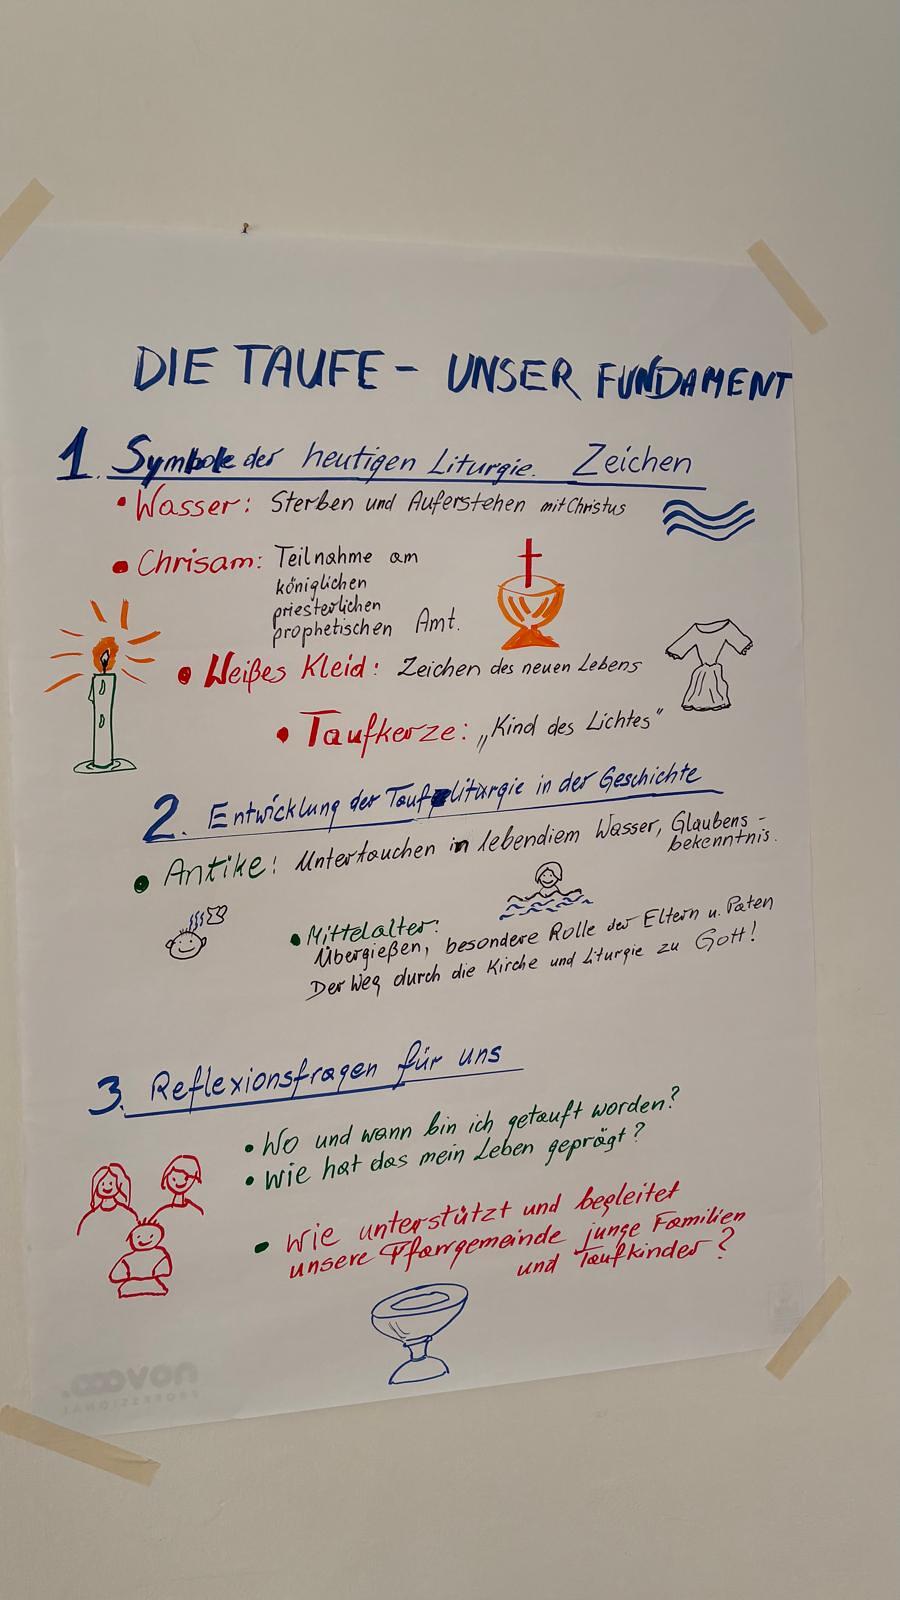 DIE TAUFE - UNSER FUNDAMENT
1. Symbole der heutigen Liturgie. Zeichen
• Wasser: Sterben und Auferstehen mit Christus
• Chrisam: Teilnahme am
königlichen
priesterlichen
prophetischen Amt.
• Weißes Kleid: Zeichen des neuen Lebens
• Taufkerze: „Kind des Lichtes"
2. Entwicklung der Taufliturgie in der Geschichte
• Antike: Untertauchen in lebendiem Wasser, Glaubens-
bekenntnis.
• Mittelalter:
Übergießen, besondere Rolle der Eltern u. Paten
Der Weg durch die Kirche und Liturgie zu Gott!
3. Reflexionsfragen für uns
• Wo und wann bin ich getauft worden?
• Wie hat das mein Leben geprägt?
• Wie unterstützt und begleitet
unsere Pfarrgemeinde junge Familien
und Taufkinder?
novooo.
PROFESSIONAL